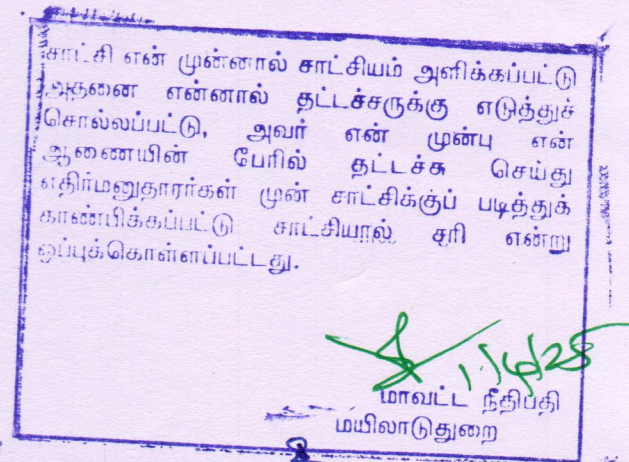 சாட்சி என் முன்னால் சாட்சியம் அளிக்கப்பட்டு
அதனை என்னால் தட்டச்சருக்கு எடுத்துச்
சொல்லப்பட்டு, அவர் என் முன்பு என்
ஆணையின் பேரில் தட்டச்சு செய்து
எதிர்மனுதாரர்கள் முன் சாட்சிக்குப் படித்துக்
காண்பிக்கப்பட்டு சாட்சியால் சரி என்று
ஒப்புக்கொள்ளப்பட்டது.
மாவட்ட நீதிபதி
மயிலாடுதுறை